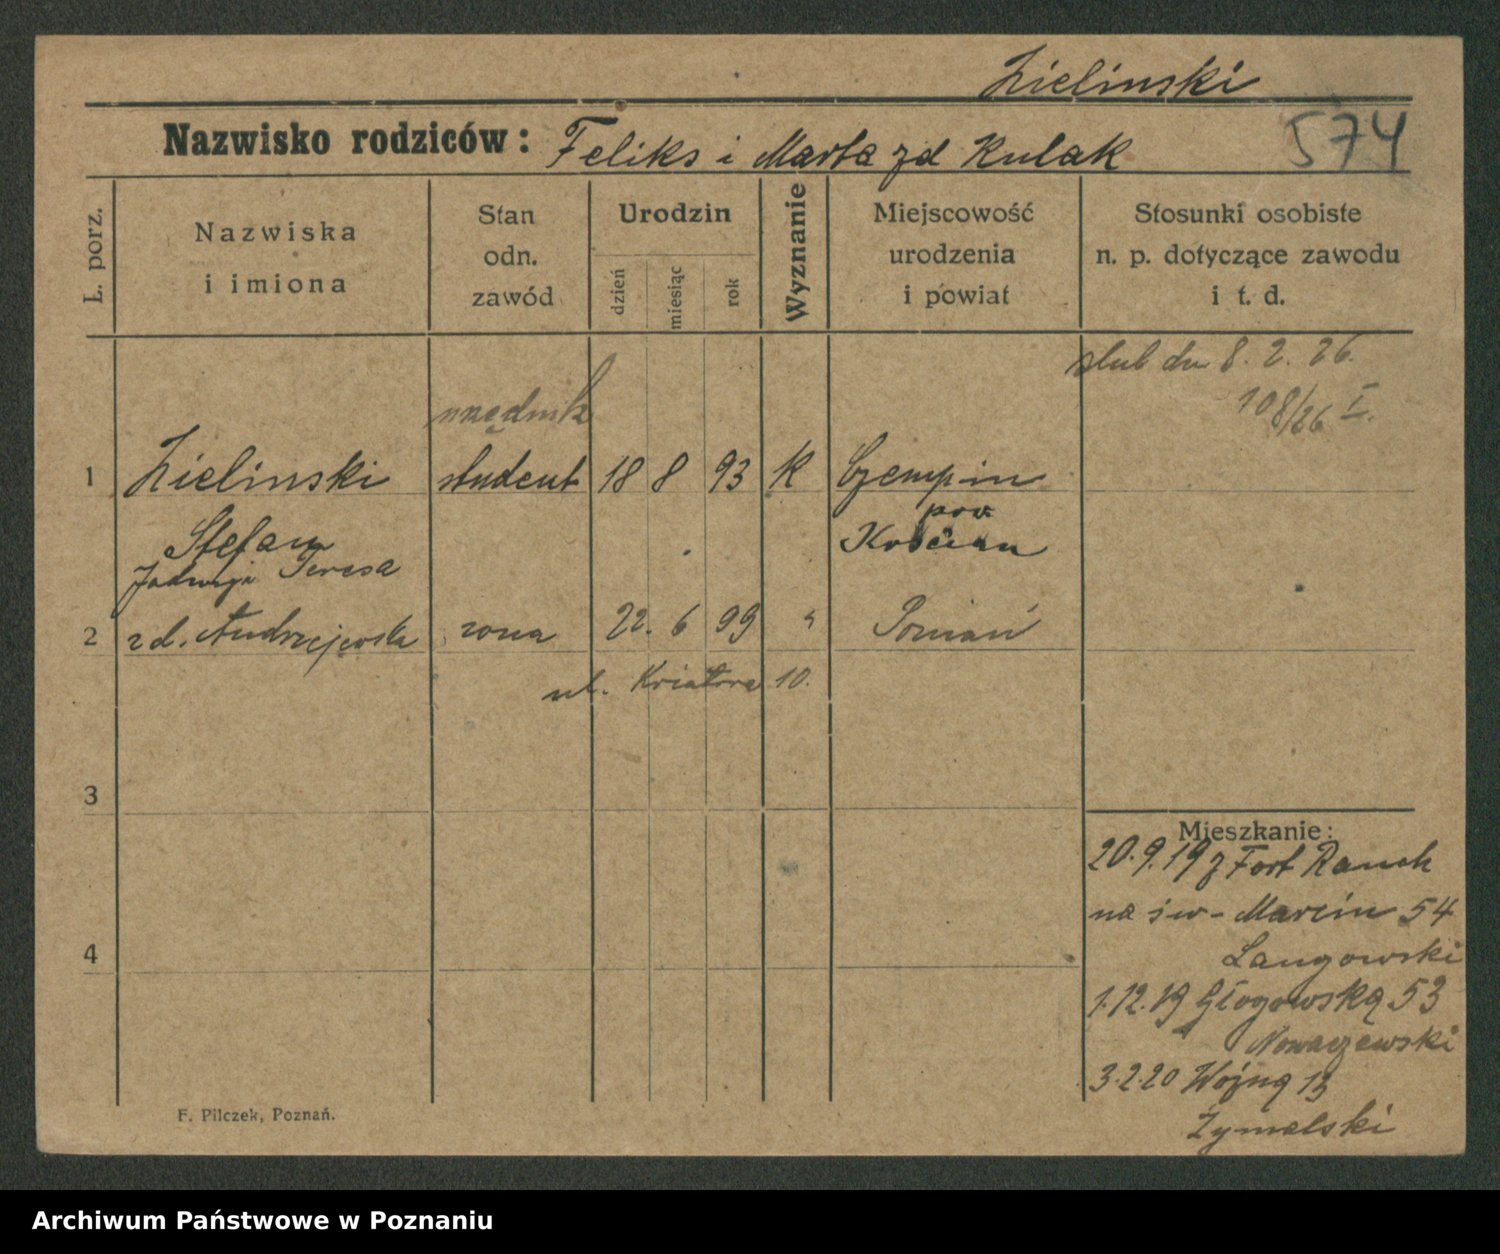 Zielinski
Nazwisko rodziców: Feliks i Marta zd Kulak 574
L. porz.
Nazwiska
i imiona
Stan
odn.
zawód
Urodzin
dzień
miesiąc
rok
Wyznanie
Miejscowość
urodzenia
i powiat
Stosunki osobiste
n. p. dotyczące zawodu
i t. d.
ślub dn 8. 2. 26.
108/26 I.
urzędnik
1 Zielinski student 18 8 93 K Czempin
pow
Stefan Kościan
Jadwiga Teresa
2 zd. Andrzejewska żona 22. 6 99 " Poznań
ul. 10.
3
Mieszkanie:
20.9.19 z Fort Rauch
na św- Marcin 54
4
Langowski
1.12.19 Głogowską 53
Nowaczewski
3.2.20 13
Zymalski
F. Pilczek, Poznań.
Archiwum Państwowe w Poznaniu